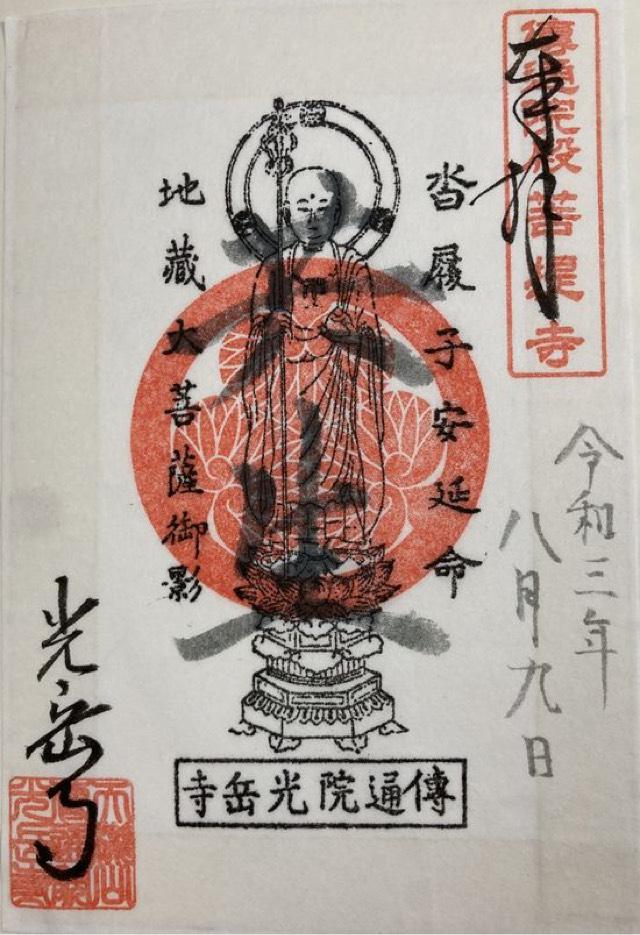 傳通院殿菩提寺
奉拝
令和三年
八月九日
沓履子安延命
地藏大菩薩御影
傳通院光岳寺
光岳寺